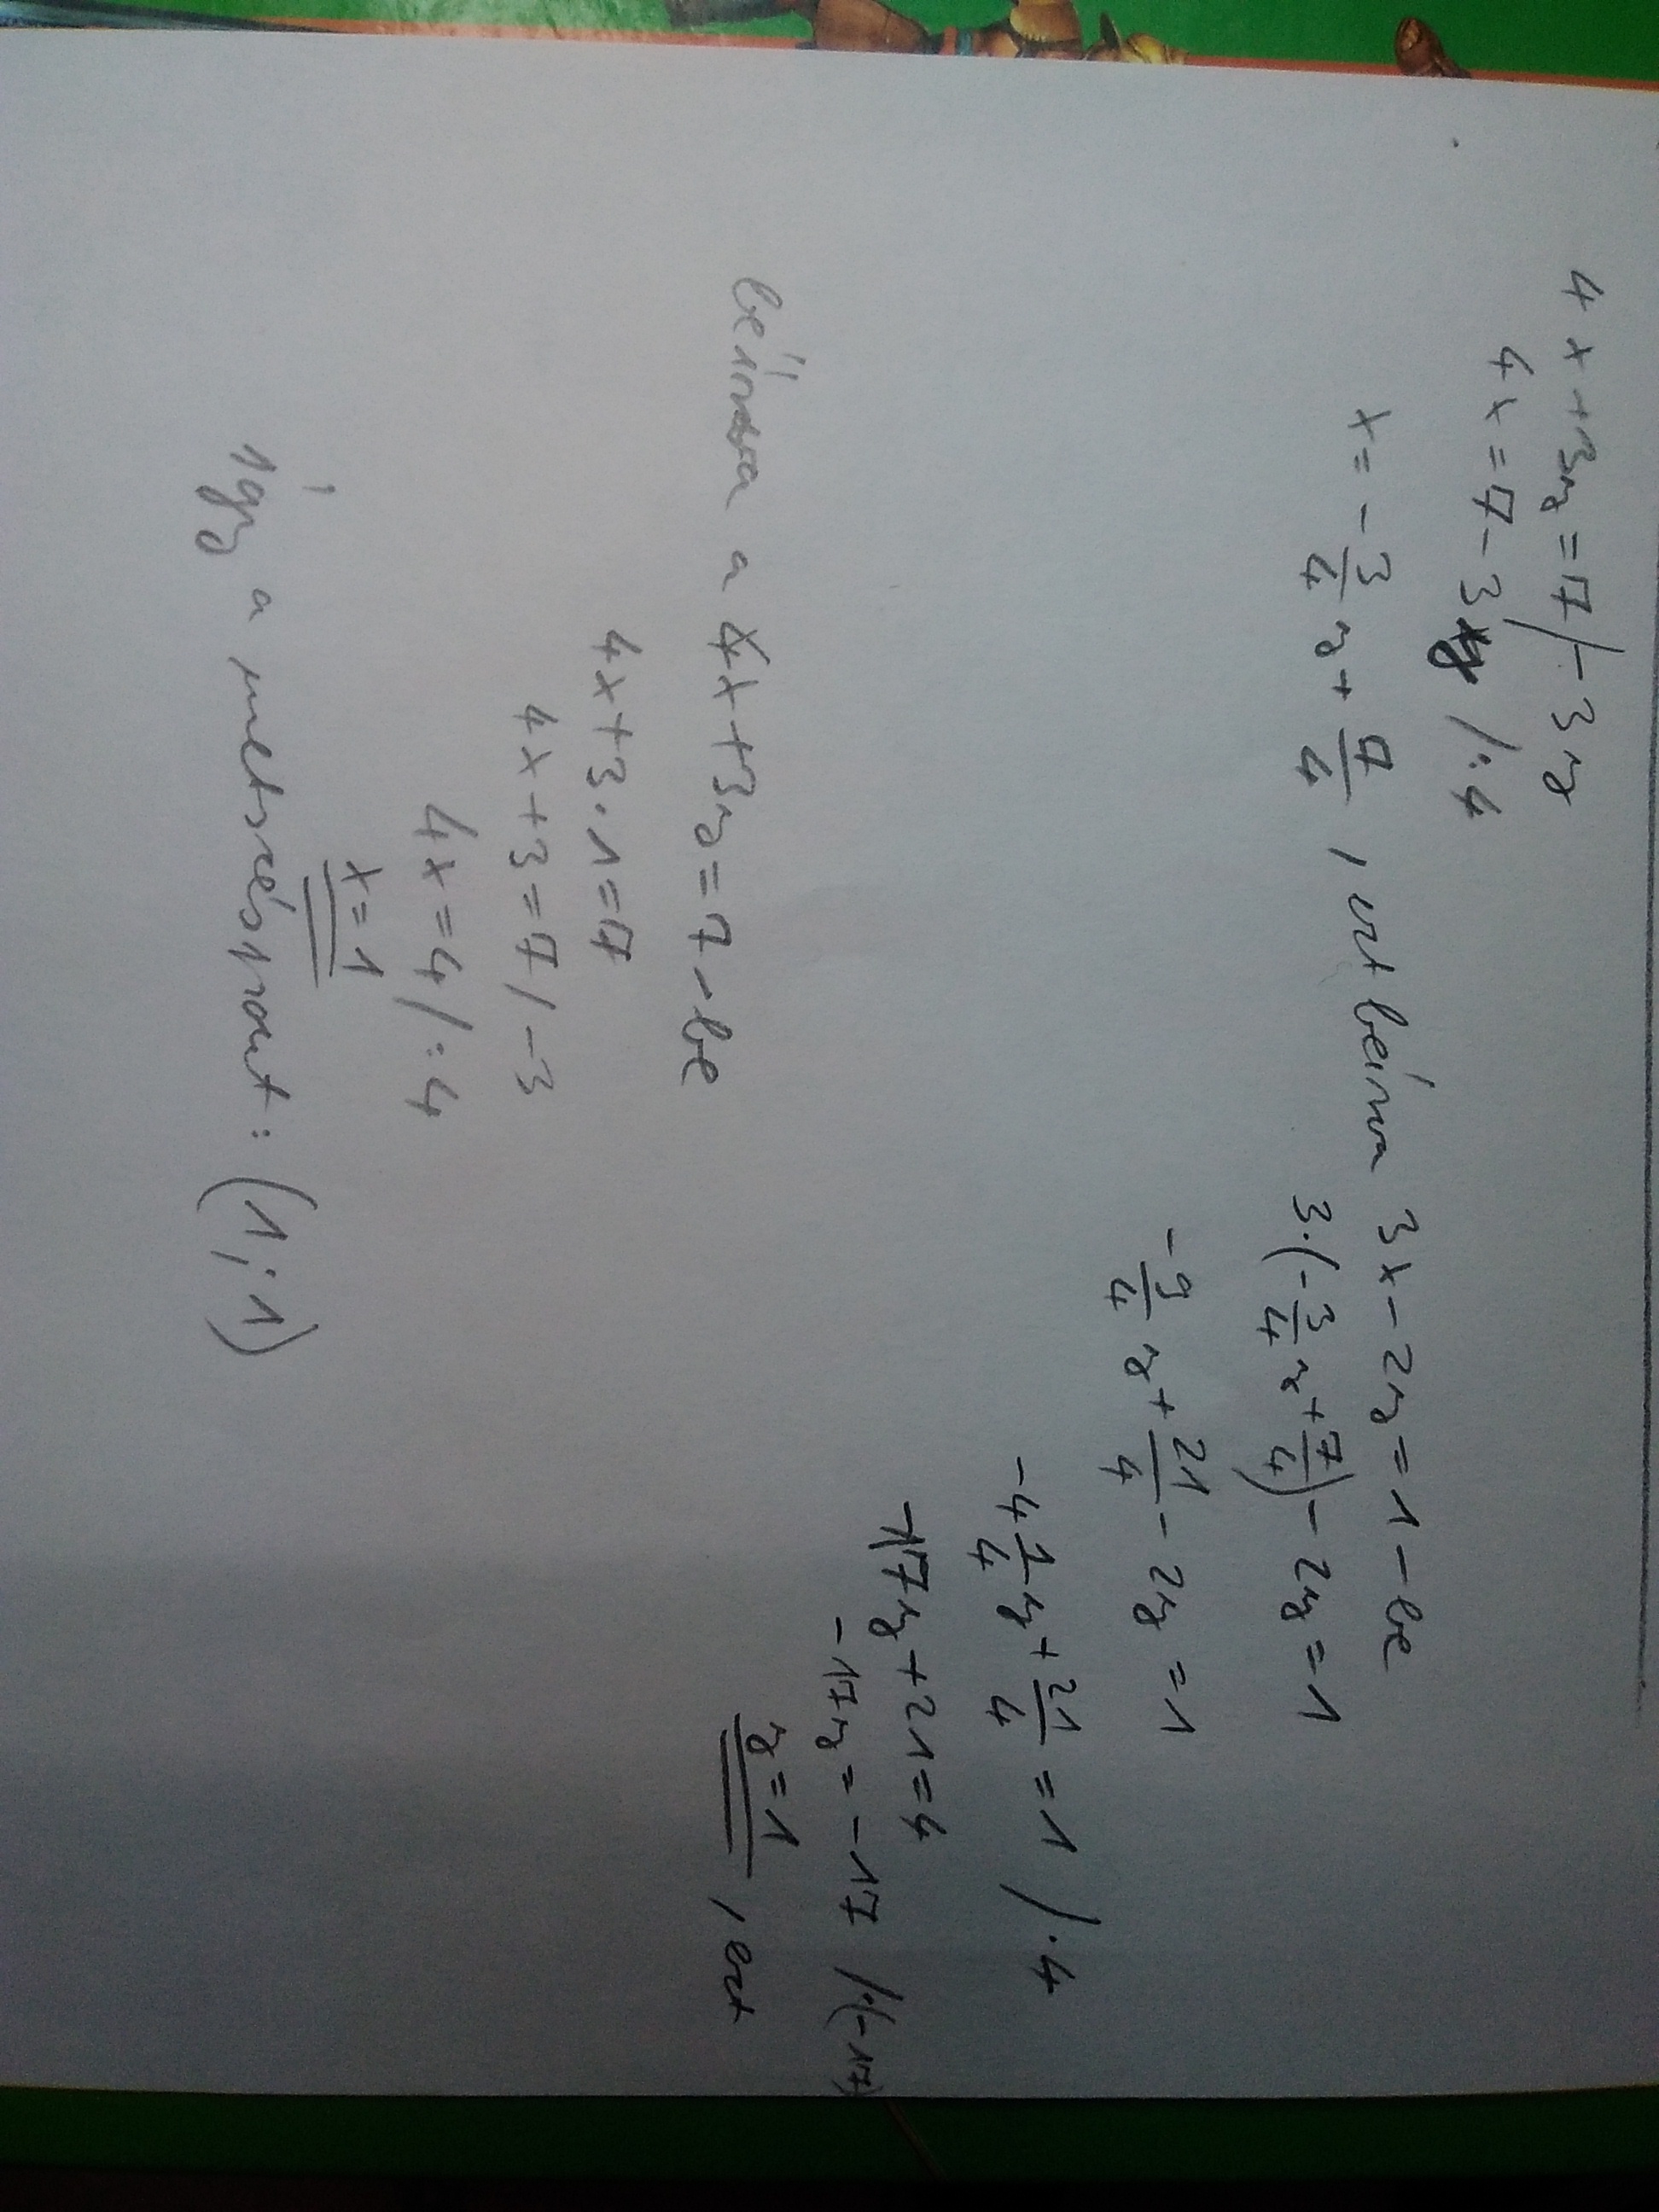 4x+3y=7/-3y
4x=7-3y /:4
x=-3/4y+7/4, ezt beírva 3x-2y=1-be
3·(-3/4y+7/4)-2y=1
-9/4y+21/4-2y=1
-4 1/4y+21/4=1 /·4
-17y+21=4
-17y=-17 /:(-17)
y=1, ezt
beírva a 4x+3y=7-be
4x+3·1=7
4x+3=7/-3
4x=4/:4
x=1
így a metszéspont: (1;1)